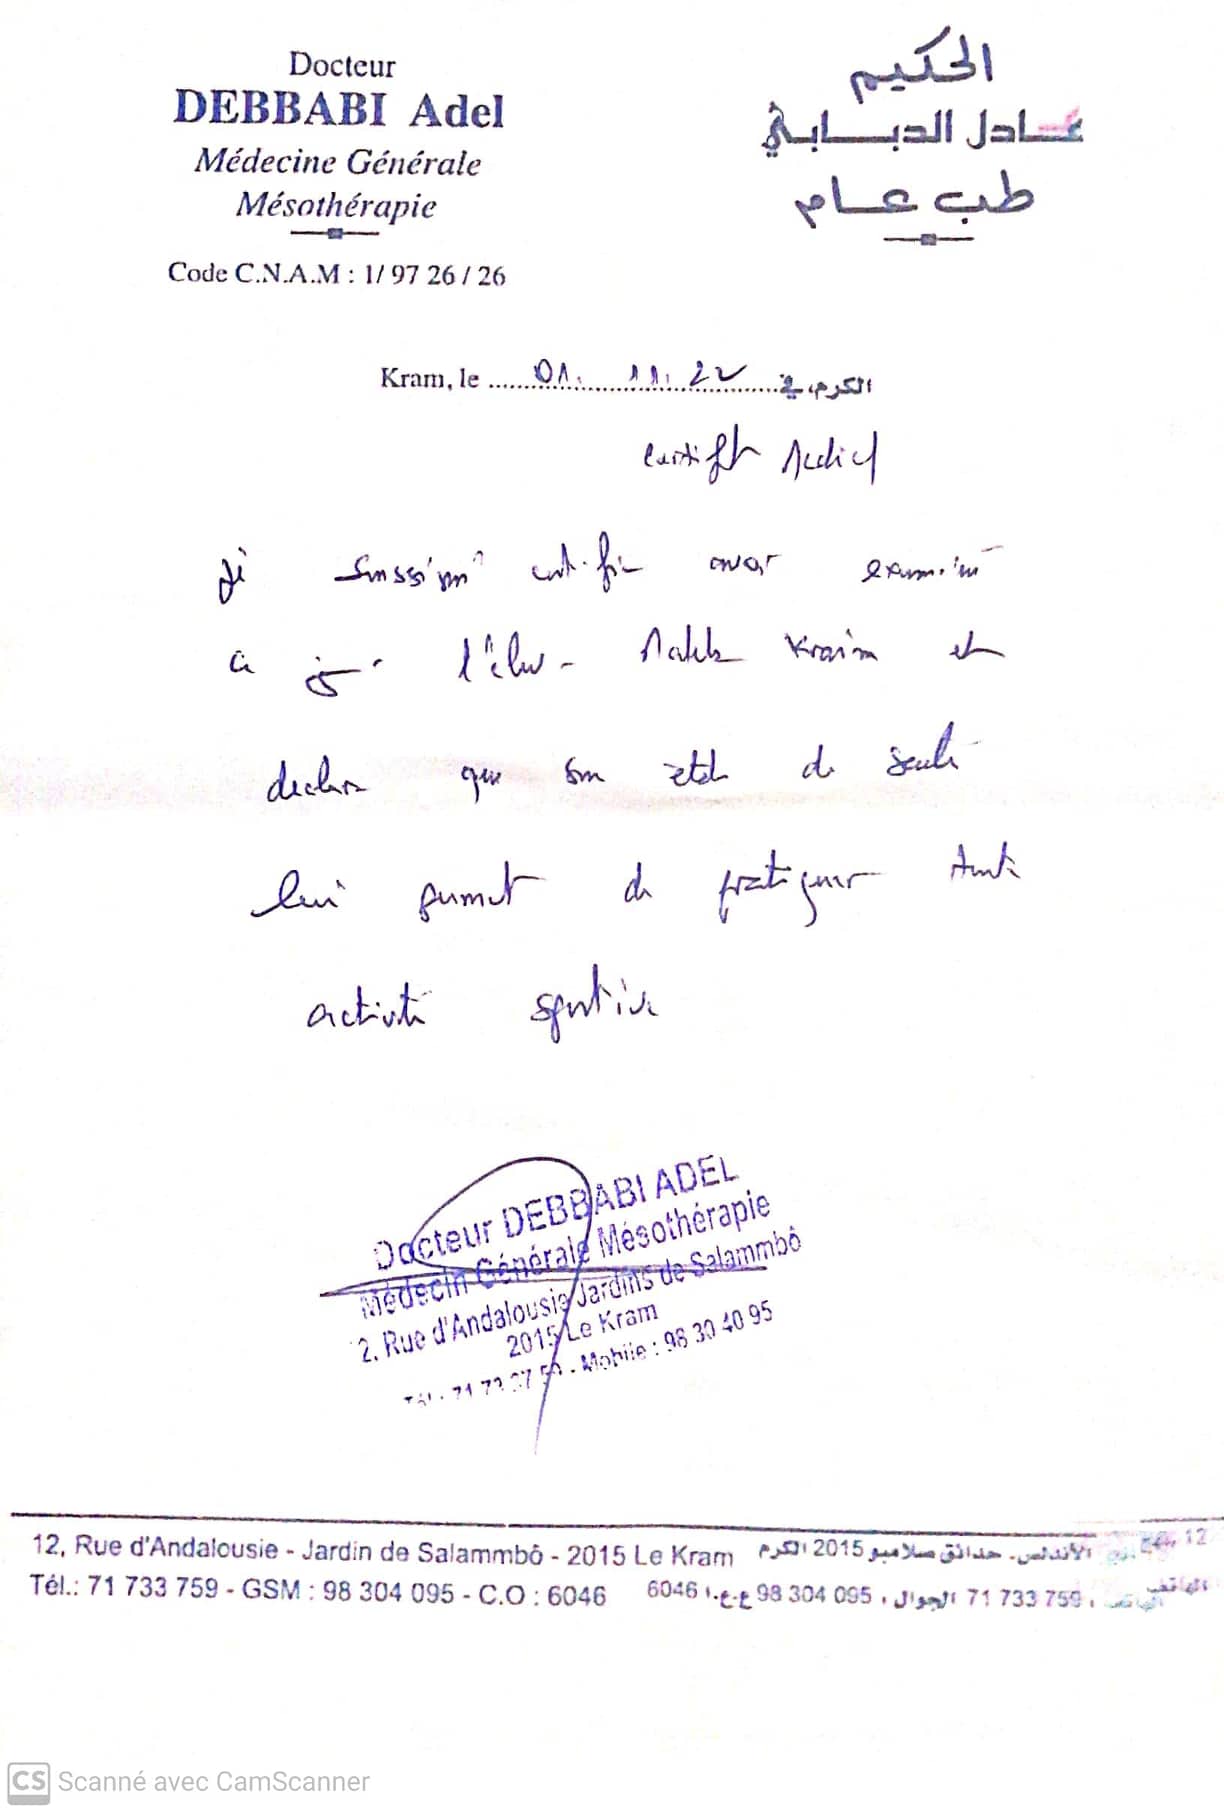 Docteur
DEBBABI Adel
Médecine Générale
Mésothérapie
Code C.N.A.M : 1/ 97 26 / 26
الحكيم
عادل الدبابي
طب عام
Kram, le 01. 11. 22 الكرم، في
Certificat Médical
Je soussigné certifie avoir examiné
ce jour l'élève Kraim et
déclare que son état de santé
lui permet de pratiquer toute
activité sportive
Docteur DEBBABI ADEL
Médecin Générale Mésothérapie
2. Rue d'Andalousie Jardins de Salammbô
2015 Le Kram
Mobile : 98 30 40 95
12, Rue d'Andalousie - Jardin de Salammbô - 2015 Le Kram
Tél.: 71 733 759 - GSM : 98 304 095 - C.O : 6046
12، نهج الأندلس، حدائق صلامبو 2015 الكرم
الهاتف : 71 733 759 الجوال : 98 304 095 ع.ع.ا 6046
CS Scanné avec CamScanner